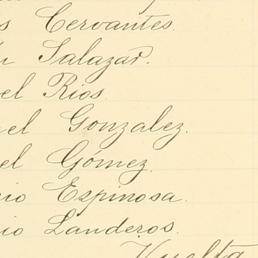 s Cervantes.
n Salazar.
el Rios.
uel Gonzalez.
el Gómez.
io Espinosa.
io Landeros.
Vuelta